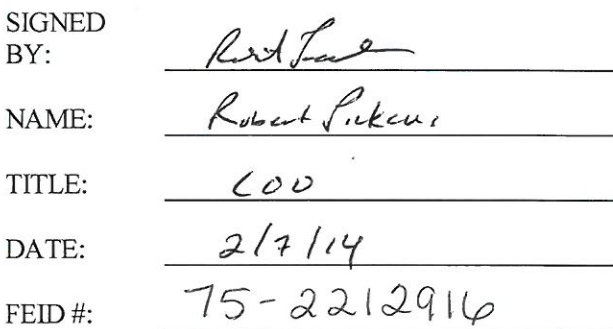 SIGNED
BY:
NAME: Robert Pickens
TITLE: COO
DATE: 2/7/14
FEID #: 75-2212916